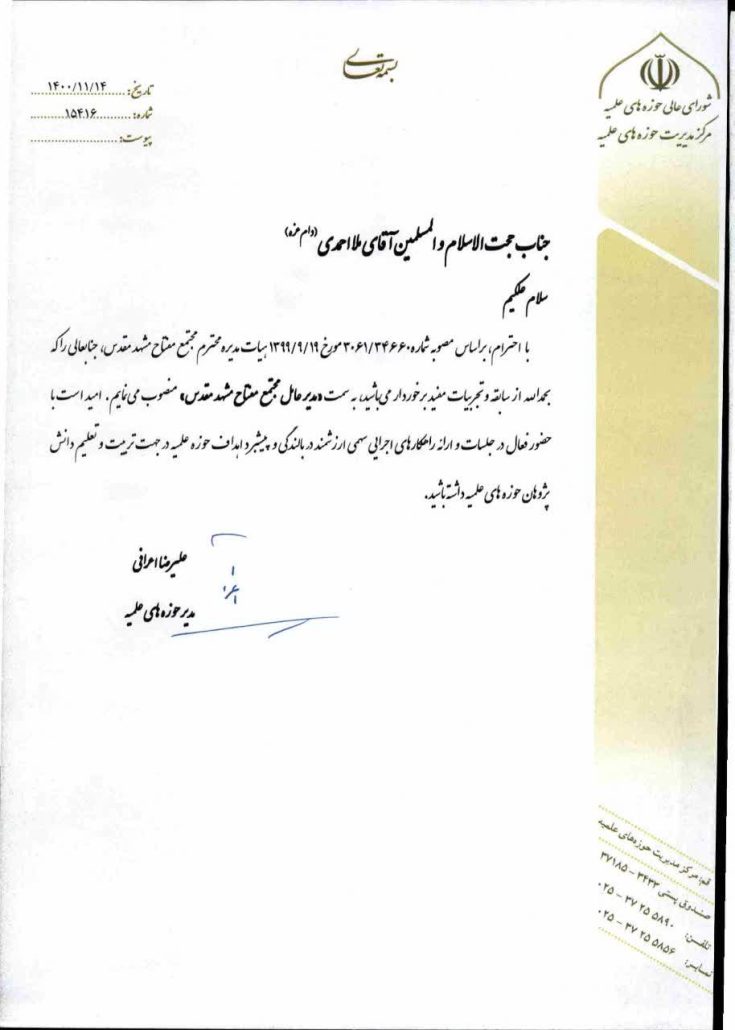 بسمه تعالی
شورای عالی حوزه های علمیه
مرکز مدیریت حوزه های علمیه
تاریخ: ۱۴۰۰/۱۱/۱۴
شماره: ۱۵۴۱۶
پیوست:
جناب حجت الاسلام و المسلمین آقای ملااحمدی (دام عزه)
سلام علیکم
با احترام، براساس مصوبه شماره ۳۰۶۱/۳۴۶۶۰ مورخ ۱۳۹۹/۹/۱۹ هیات مدیره محترم مجتمع مفتاح مشهد مقدس، جنابعالی را که
بحمدالله از سابقه و تجربیات مفید برخوردار می‌باشید، به سمت «مدیرعامل مجتمع مفتاح مشهد مقدس» منصوب می‌نمایم. امید است با
حضور فعال در جلسات و ارائه راهکارهای اجرایی سهمی ارزشمند در بالندگی و پیشبرد اهداف حوزه علمیه در جهت تربیت و تعلیم دانش
پژوهان حوزه های علمیه داشته باشید.
علیرضا اعرافی
مدیر حوزه های علمیه
قم: مرکز مدیریت حوزه‌های علمیه
صندوق پستی ۳۴۳۳ - ۳۷۱۸۵
تلفن: ۰۲۵ - ۳۷ ۲۵ ۵۸۹۰
نمابر: ۰۲۵ - ۳۷ ۲۵ ۵۸۵۶